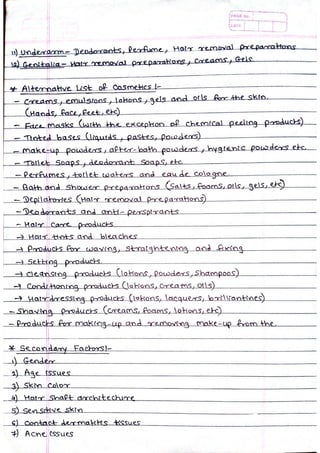 11) Underarm - Deodorants, Perfume, Hair removal preparations
12) Genitalia - Hair removal preparations, Creams, Gels
* Alternative List of Cosmetics :-
- Creams, emulsions, lotions, gels and oils for the skin.
(Hands, Face, Feet, etc)
- Face masks (with the exception of chemical peeling products)
- Tinted bases (liquids, pastes, powders)
- make-up powders, after-bath powders, hygienic powders etc.
- Toilet Soaps, deodorant soaps, etc
- Perfumes, toilet waters and eau de cologne.
- Bath and Shower preparations (Salts, foams, oils, gels, etc)
- Depilatories (Hair removal preparations)
- Deodorants and anti-perspirants
- Hair care products
→ Hair tints and bleaches
→ Products for waving, straightening and fixing
→ Setting products
→ Cleansing products (lotions, powders, shampoos)
→ Conditioning products (lotions, creams, oils)
→ Hairdressing products (lotions, lacquers, brilliantines)
- Shaving products (creams, foams, lotions, etc)
- Products for making-up and removing make-up from the.
* Secondary Factors :-
1) Gender
2) Age issues
3) Skin color
4) Hair shaft architechure
5) Sensitive skin
6) Contact dermatitis issues
7) Acne issues